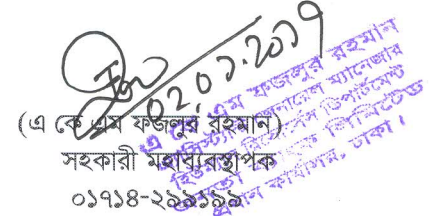 02.01.2017
(এ কে এম ফজলুর রহমান)
সহকারী মহাব্যবস্থাপক
০১৭১৪-২৯৯১৯৯
এ কে এম ফজলুর রহমান
এ্যাসিস্ট্যান্ট জেনারেল ম্যানেজার
ডিপার্টমেন্ট
লিমিটেড
প্রধান কার্যালয়, ঢাকা।